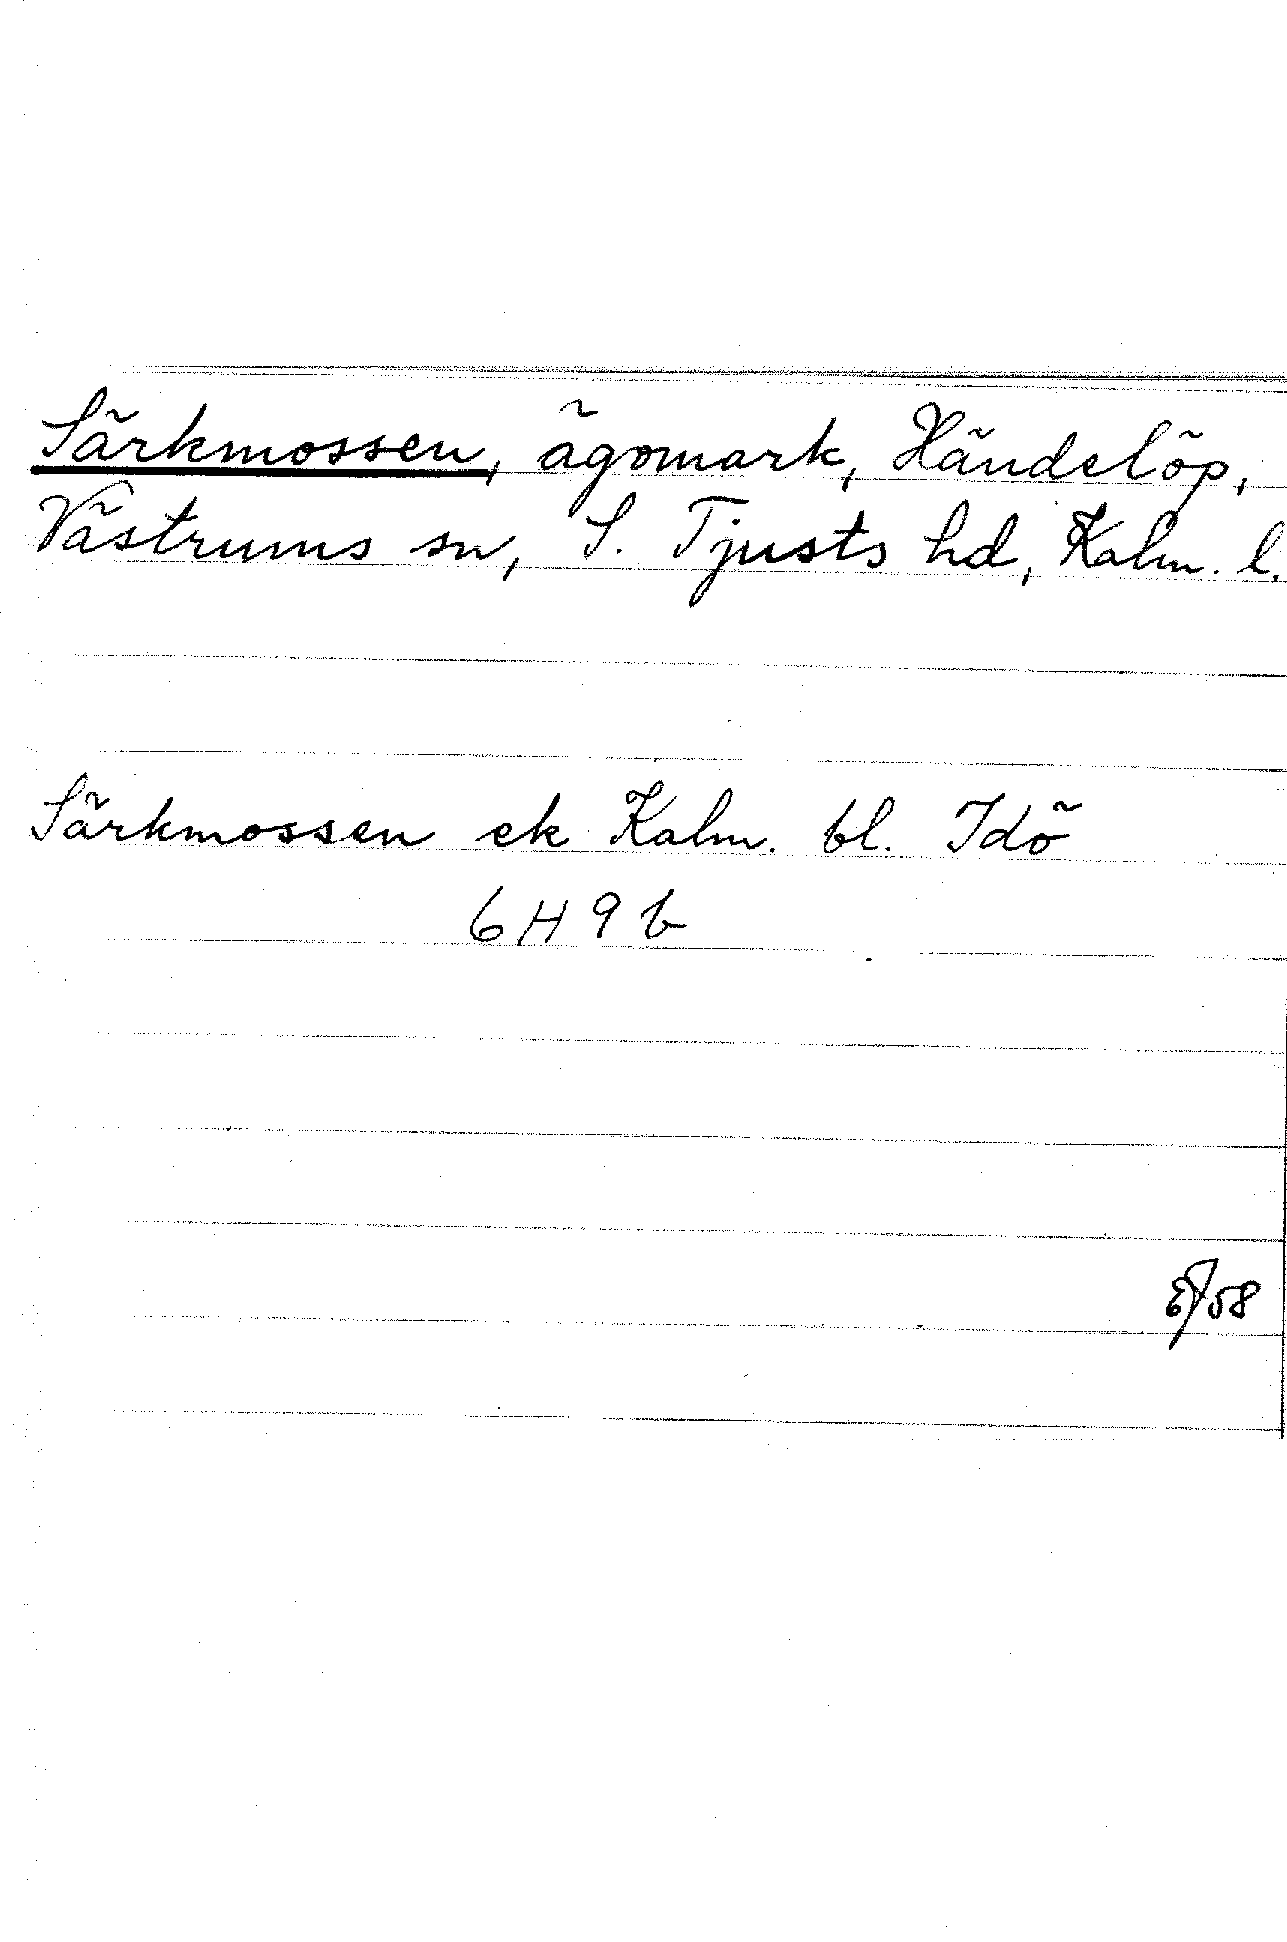 Särkmossen, ägomark, Händelöp,
Västrums sn, S. Tjusts hd, Kalm. l.
Särkmossen ek Kalm. bl. Idö
6 H 9 b
58